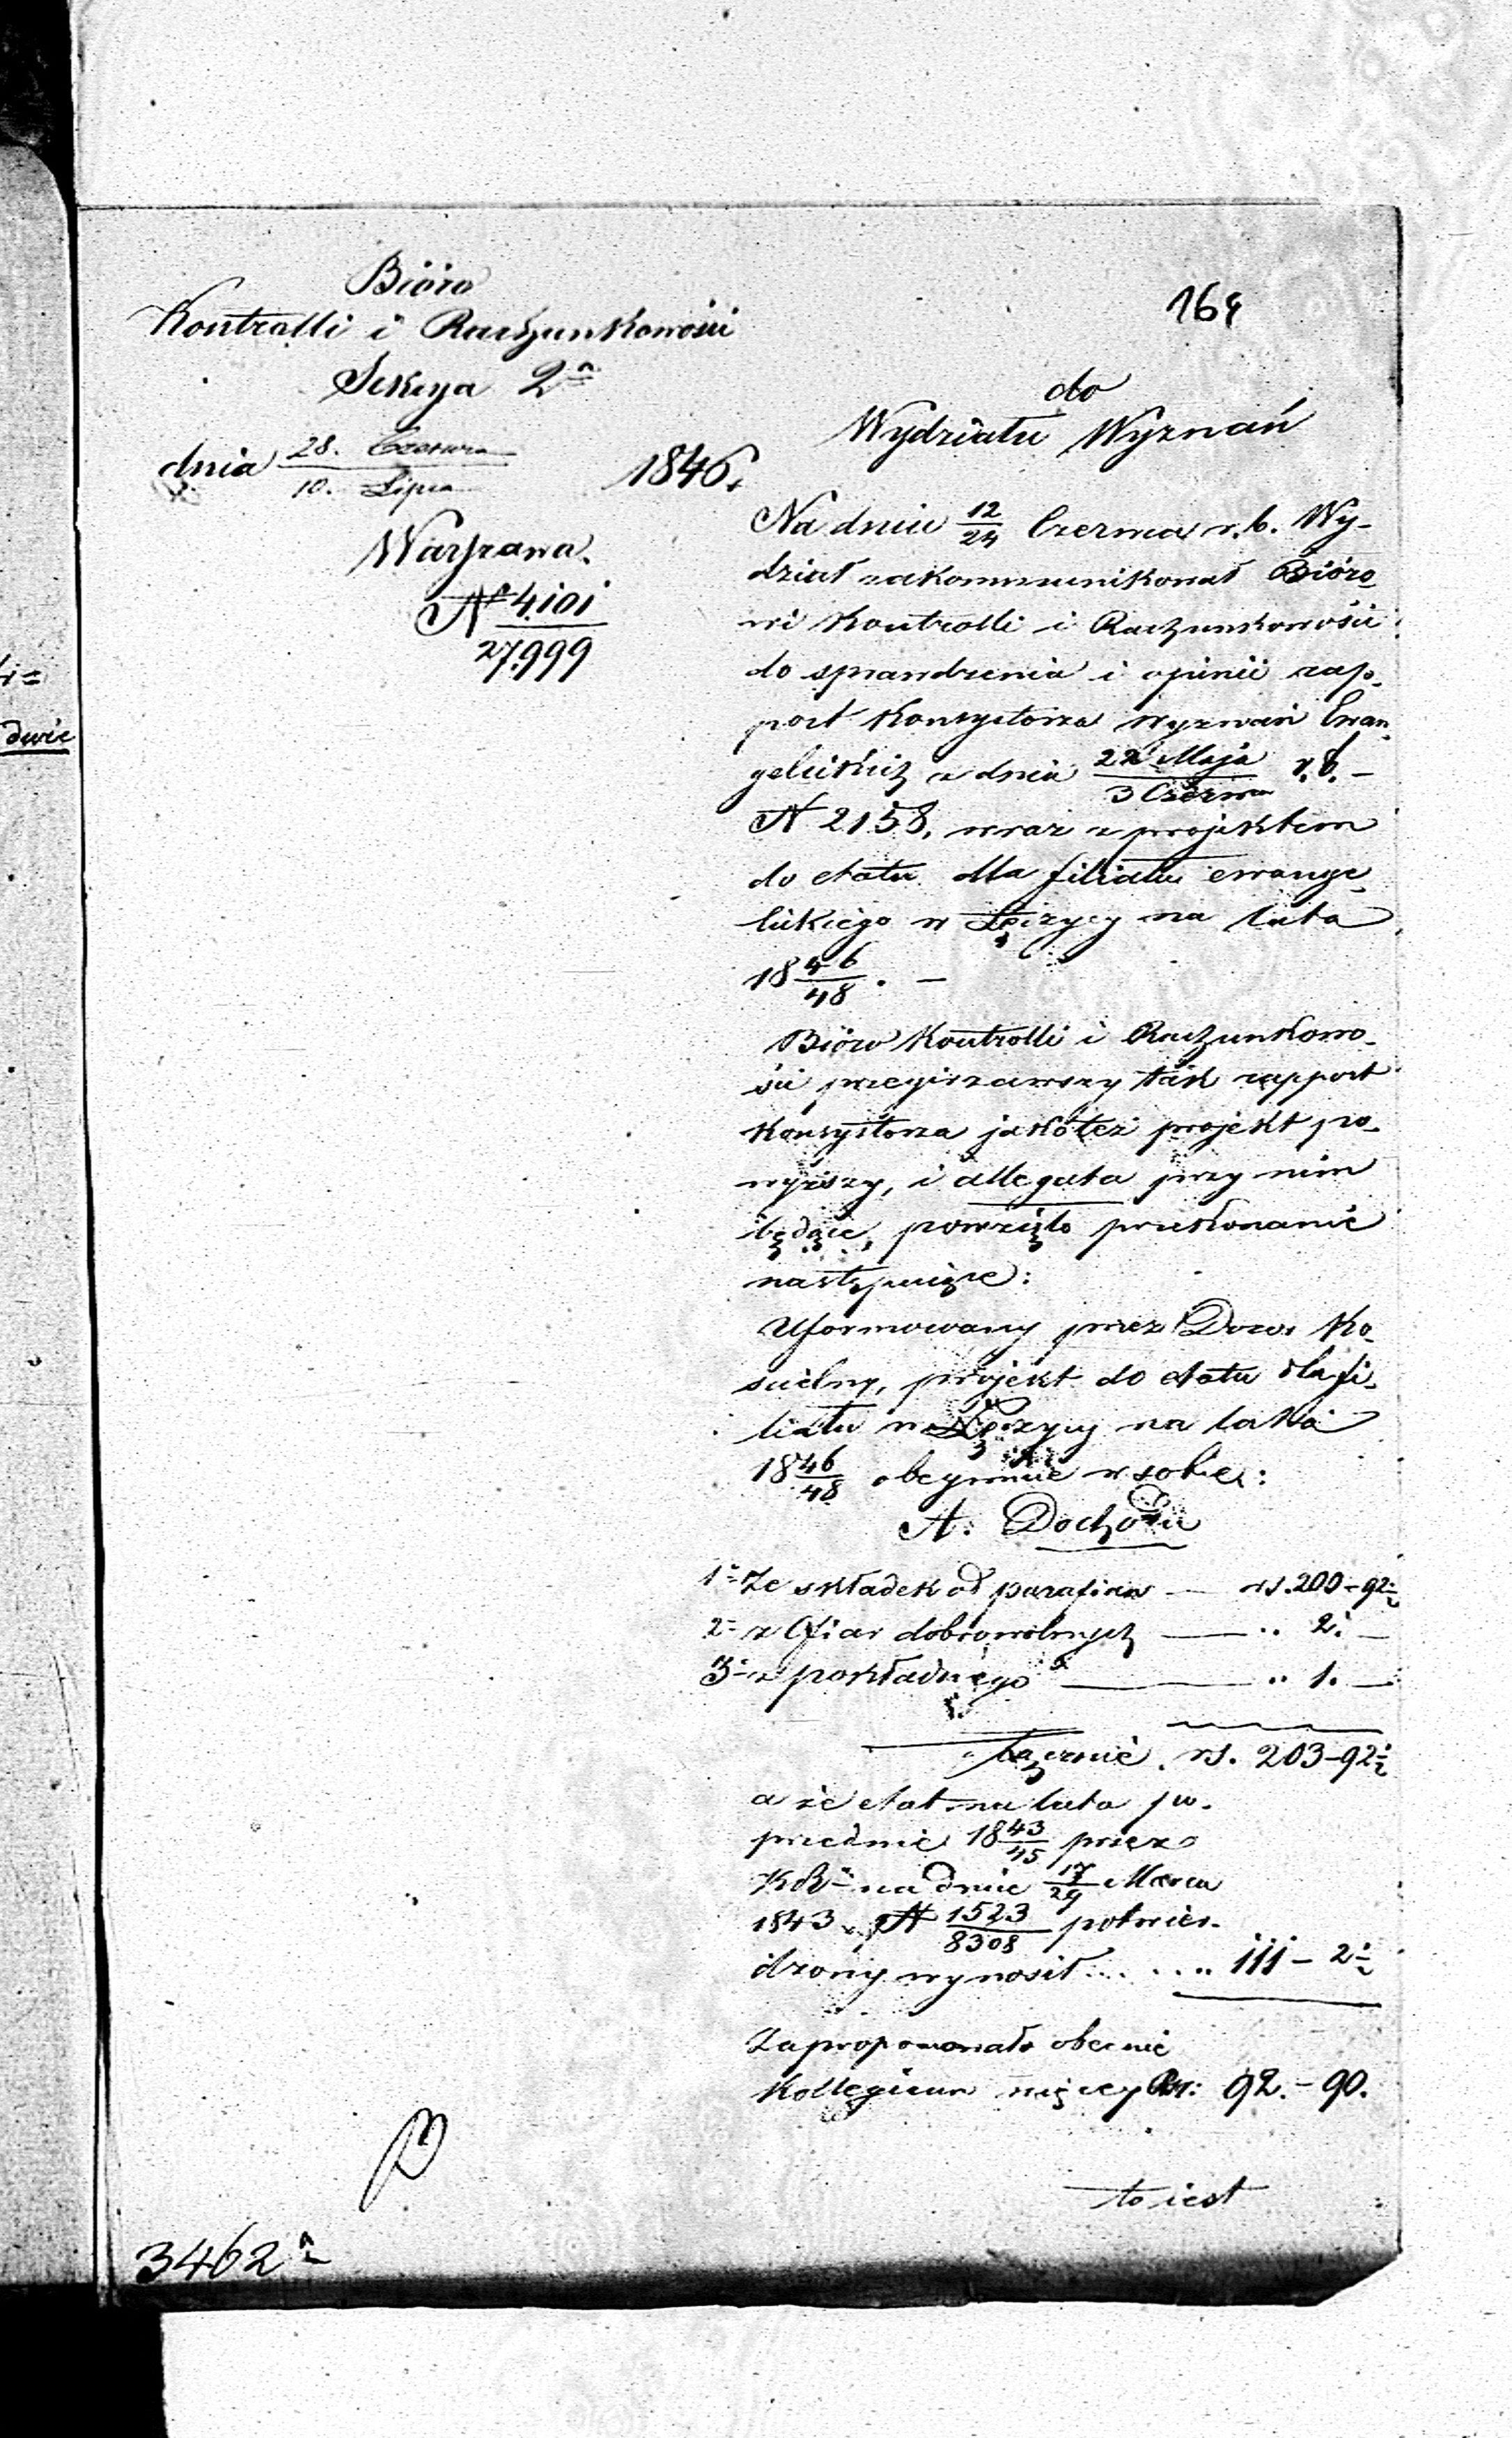 164
Bióro
Kontrolli i Rachunkowości
Sekcya 2a
dnia 28. Czerwca / 10. Lipca 1846.
Warszawa.
N 4101 / 27999
do
Wydziału Wyznań
Na dniu 12/24 Czerwca r. b. Wy-
dział zakommunikował Bióro
wi Kontrolli i Rachunkowości
do sprawdzenia i opinii rap-
port Konsystorza wyznań Ewan-
gelickich z dnia 22 Maja / 3 Czerwca r. b. –
N 2158, wraz z projektem
do etatu dla filiału ewange-
lickiego w Łęczycy na lata
18 46/48 . –
Bióro Kontrolli i Rachunkowo-
ści przejrzawszy tak rapport
Konsystorza jako też projekt po-
wyższy, i allegata przy nim
będące, powzięło przekonanie
następujące:
Uformowany przez Dozór Ko-
ścielny, projekt do etatu dla fi-
liału w Łęczycy na lata
18 46/48 obejmuie w sobie:
A. Dochodu
1– Ze składek od parafian — rs. 200 – 92 1/2
2– z Ofiar dobrowolnych — „ 2. —
3– z pokładnego — „ 1. —
Łącznie . rs. 203 – 92 1/2
a że etat na lata po-
przednie 18 43/45 przez
K R na dniu 17/29 Marca
1843 r. N 1523/8308 potwier-
dzony wynosił . . . . „ 111 – 2 1/2
Zaproponowało obecnie
Kollegium więcej Rs: 92. – 90.
to iest
3462a
dwie